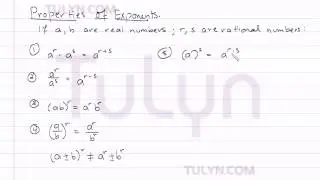 TULYN.COM
Properties Of Exponents.
If a, b are real numbers ; r, s are rational numbers :
① aʳ · aˢ = aʳ⁺ˢ
② aʳ/aˢ = aʳ⁻ˢ
③ (ab)ʳ = aʳbʳ
④ (a/b)ʳ = aʳ/bʳ
(a ± b)ʳ ≠ aʳ ± bʳ
Tulyn
TULYN.COM